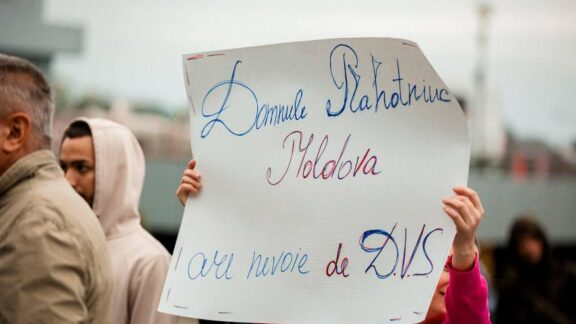 Domnule Plahotniuc
Moldova
are nevoie de D.V.S